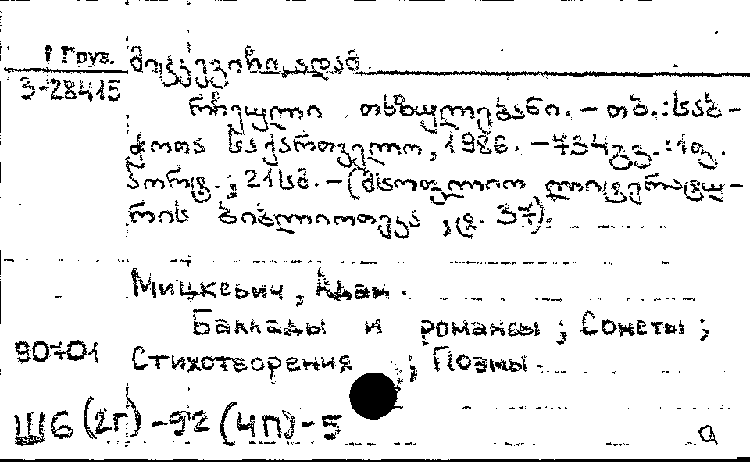 1 Груз. მიცკევიჩი, ადამ.
3-28415
რჩეული თხზულებანი. – თბ.: საბ-
ჭოთა საქართველო, 1986. – 734 გვ.: 1 ფ.
პორტ.; 21 სმ. – (მსოფლიო ლიტერატუ-
რის ბიბლიოთეკა, ტ. 37).
Мицкевич, Адам.
Баллады и романсы; Сонеты;
90701 Стихотворения; Поэмы.
Ш6(2Г)-92(4П)-5
а